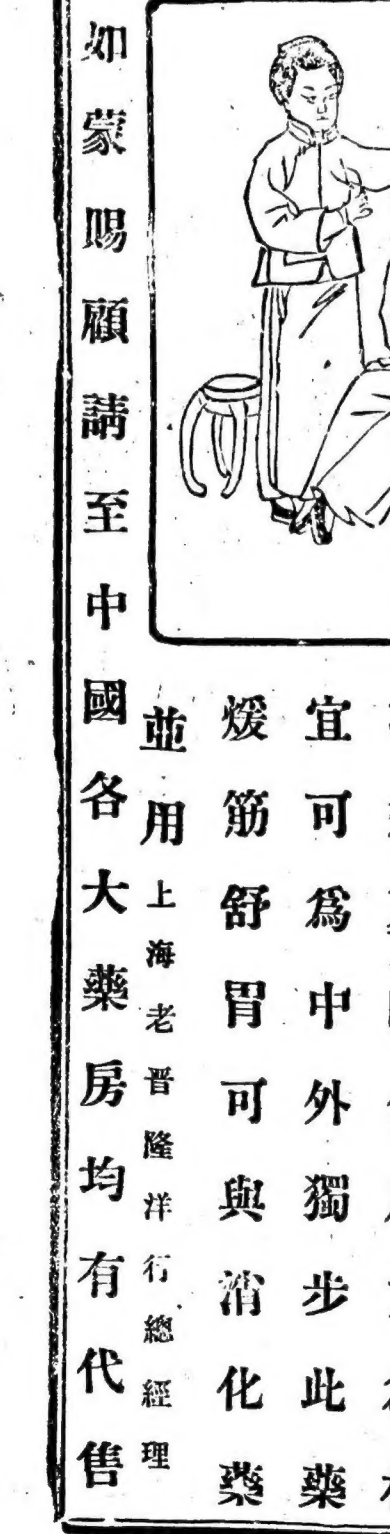 宜可爲中外獨步此藥
煖筋舒胃可與消化藥
並用
上海老晋隆洋行總經理
如蒙賜顧請至中國各大藥房均有代售